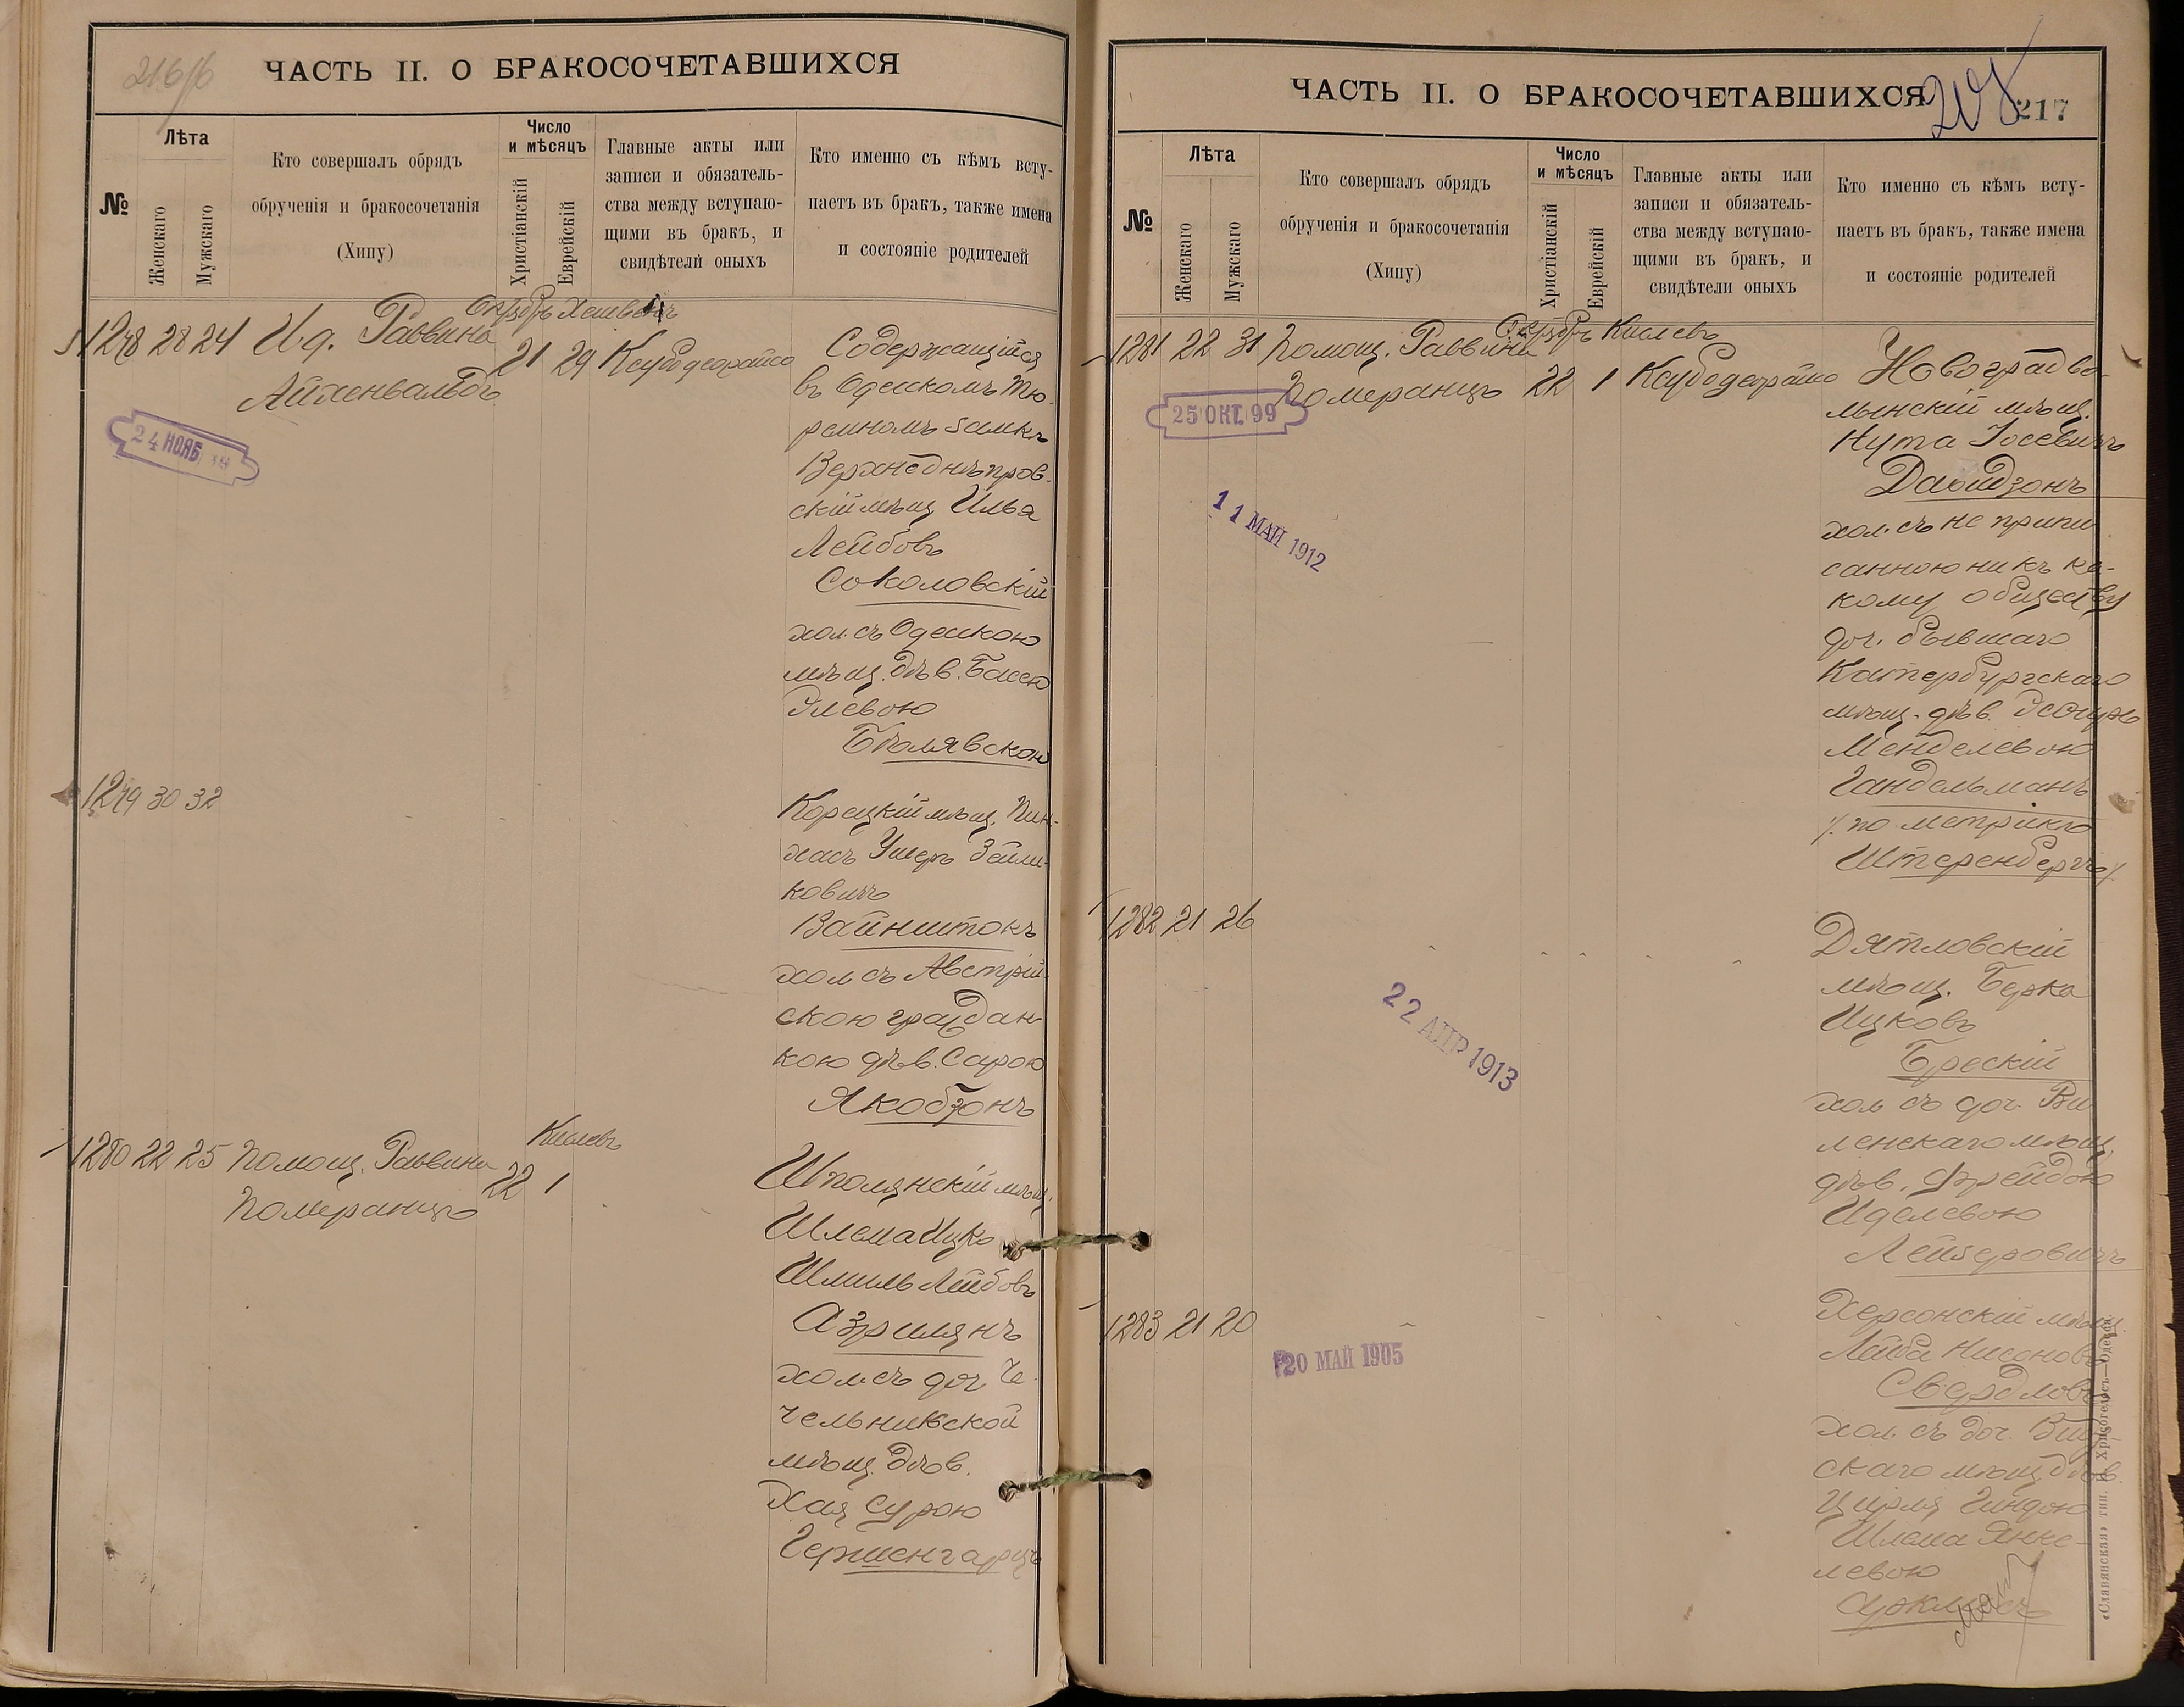 216/б
ЧАСТЬ II. О БРАКОСОЧЕТАВШИХСЯ
№
Лѣта
Женскаго
Мужскаго
Кто совершалъ обрядъ
обрученія и бракосочетанія
(Хипу)
Число
и мѣсяцъ
Христіанскій
Еврейскій
Главные акты или
записи и обязатель-
ства между вступаю-
щими въ бракъ, и
свидѣтели оныхъ
Кто именно съ кѣмъ всту-
паетъ въ бракъ, также имена
и состояніе родителей
Октябрь Хешвонъ
1278 28 24 Ид. Раввина 21 29 Ксубодеорайсо
Айхенвальдъ
24 НОЯБ
Содержащійся
въ Одесскомъ Тю-
ремномъ замкѣ
Верхнеднѣпров-
скій мѣщ. Илья
Лейбовъ
Соколовскій
хол. съ Одесскою
мѣщ. дѣв. Басею
Элевою
Бѣлявскою
1279 30 32
Корецкій мѣщ. Пин-
хасъ Ушеръ Зейли-
ковичъ
Вайнштокъ
хол съ Австрій-
скою граждан-
кою дѣв. Сарою
Якобзонъ
Кислевъ
1280 22 25 Помощ. Раввина 22 1
Померанцъ
Шполянскій мѣщ.
Шлема Ицко
Шмиль Лейбовъ
Азрилянъ
хол. съ доч Че-
чельникской
мѣщ. дѣв.
Хая Сурою
Гершенгорцъ
ЧАСТЬ II. О БРАКОСОЧЕТАВШИХСЯ
217
№
Лѣта
Женскаго
Мужскаго
Кто совершалъ обрядъ
обрученія и бракосочетанія
(Хипу)
Число
и мѣсяцъ
Христіанскій
Еврейскій
Главные акты или
записи и обязатель-
ства между вступаю-
щими въ бракъ, и
свидѣтели оныхъ
Кто именно съ кѣмъ всту-
паетъ въ бракъ, также имена
и состояніе родителей
Октябрь Кислевъ
1281 22 31 Помощ. Раввина 22 1 Ксубодеорайсо
Померанцъ
25 ОКТ. 99
11 МАЙ 1912
Новоградво-
лынскій мѣщ.
Нута Іосевичъ
Давидзонъ
хол. съ не припи
санною ни къ ка-
кому обществу
доч. бывшаго
Катербургскаго
мѣщ. дѣв.
Менделевою
Гандельманъ
/. по метрикѣ
Штеренбергъ /.
1282 21 26
22 АПР 1913
Дятловскій
мѣщ. Берка
Ицковъ
Брескій
хол съ доч. Ви
ленскаго мѣщ.
дѣв. Фрейдою
Иделевою
Лейзеровичъ
1283 21 20
20 МАЙ 1905
Херсонскій мѣщ.
Лейба Нисоновъ
Свердловъ
хол. съ доч.
скаго мѣщ дѣв.
Цирля Гиндою
Шлема Янке-
левою
«Славянская» тип. Н. Хрисогелосъ—Одесса.